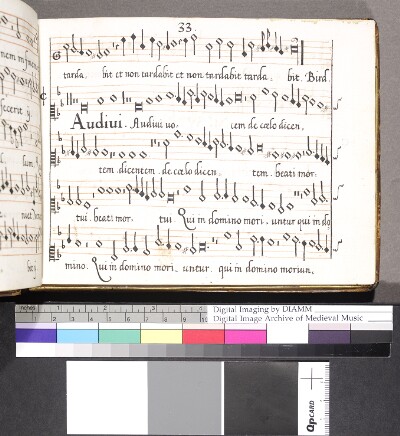 33.
tarda. bit et non tardabit et non tardabit tarda. bit. Bird
Audiui. Audiui uo. cem de cœlo dicen.
tem. dicentem. de cœlo dicen. tem. beati mor.
tui. beati mor. tui. Qui in domino mori. untur qui in do
mino. Qui in domino mori. untur. qui in domino moriun.
Digital Imaging by DIAMM
Digital Image Archive of Medieval Music
QPCARD